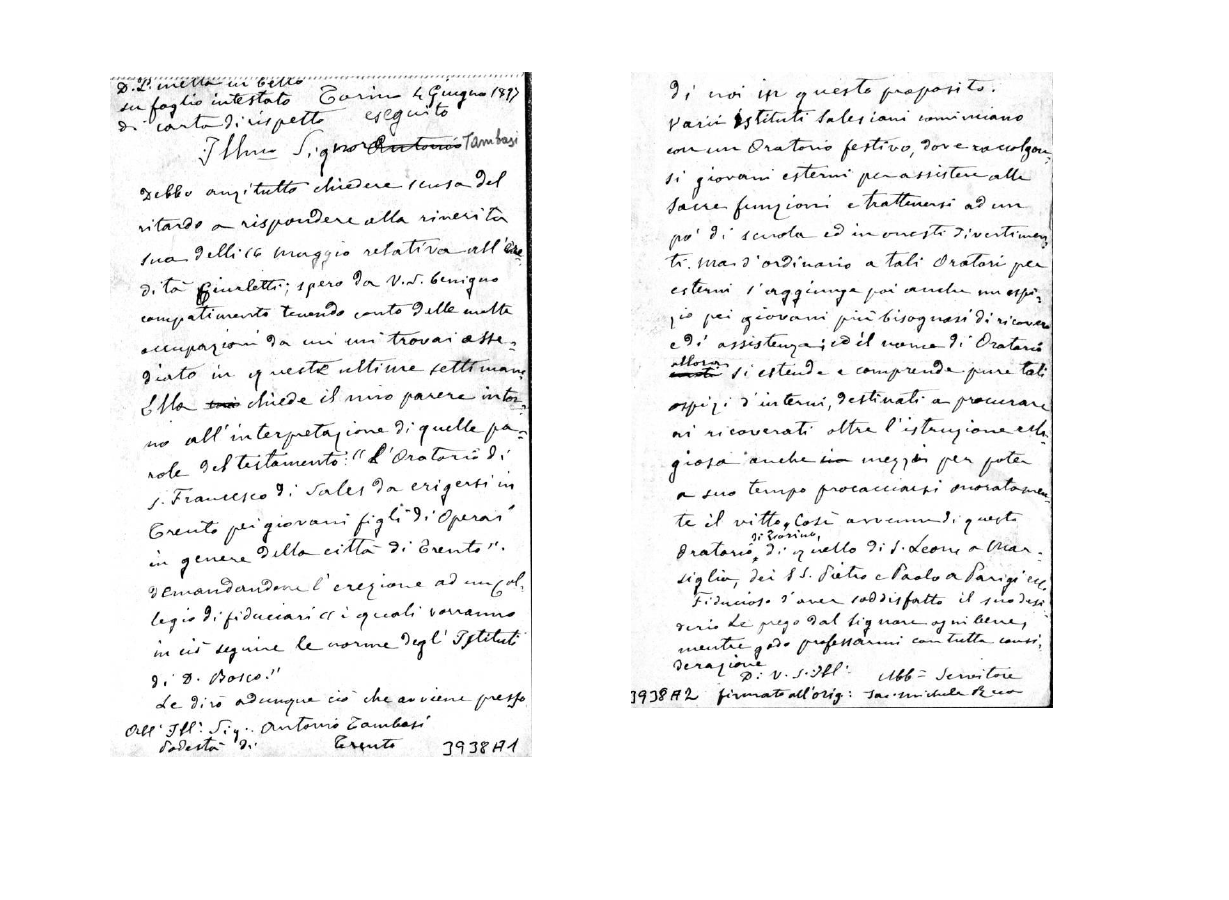 D. L. metta in bello
su foglio intestato Torino 4 Giugno 1897
di carta di rispetto eseguito
Ill.mo Signor Antonio Tambosi
Debbo anzitutto chiedere scusa del
ritardo a rispondere alla riverita
sua delli 16 maggio relativa all'ere-
dità Giuletti; spero da V.S. benigno
compatimento tenendo conto delle molte
occupazioni da cui mi trovai asse-
diato in queste ultime settimane
Ella chiede il mio parere intor-
no all'interpretazione di quelle pa-
role del testamento: "L'Oratorio di
S. Francesco di Sales da erigersi in
Trento pei giovani figli di Operai
in genere della città di Trento".
demandandone l'erezione ad un col-
legio di fiduciari "i quali vorranno
in ciò seguire le norme degl'Istituti
di D. Bosco."
Le dirò adunque ciò che avviene presso
All'Ill. Sig. Antonio Tambosi
Podestà di Trento 3938A1
di noi in questo proposito.
Varii Istituti Salesiani cominciano
con un Oratorio festivo, dove raccolgon-
si giovani esterni per assistere alle
sacre funzioni e trattenersi ad un
po' di scuola ed in onesti divertimen-
ti. Ma d'ordinario a tali Oratori per
esterni s'aggiunge poi anche un ospi-
zio pei giovani più bisognosi di ricovero
e di assistenza; ed il nome di Oratorio
allora si estende e comprende pure tali
ospizi d'interni, destinati a procurare
ai ricoverati oltre l'istruzione reli-
giosa anche mezzi per poter
a suo tempo procacciarsi onoratamen-
te il vitto. Così avvenne di questo
Oratorio di Torino, di quello di S. Leone a Mar-
siglia, dei SS. Pietro e Paolo a Parigi ecc.
Fiducioso d'aver soddisfatto il suo desi-
derio Le prego dal Signore ogni bene,
mentre godo professarmi con tutta consi-
derazione
Di V. S. Ill. Obb. Servitore
3938A2 firmato all'orig: Sac. Michele Rua